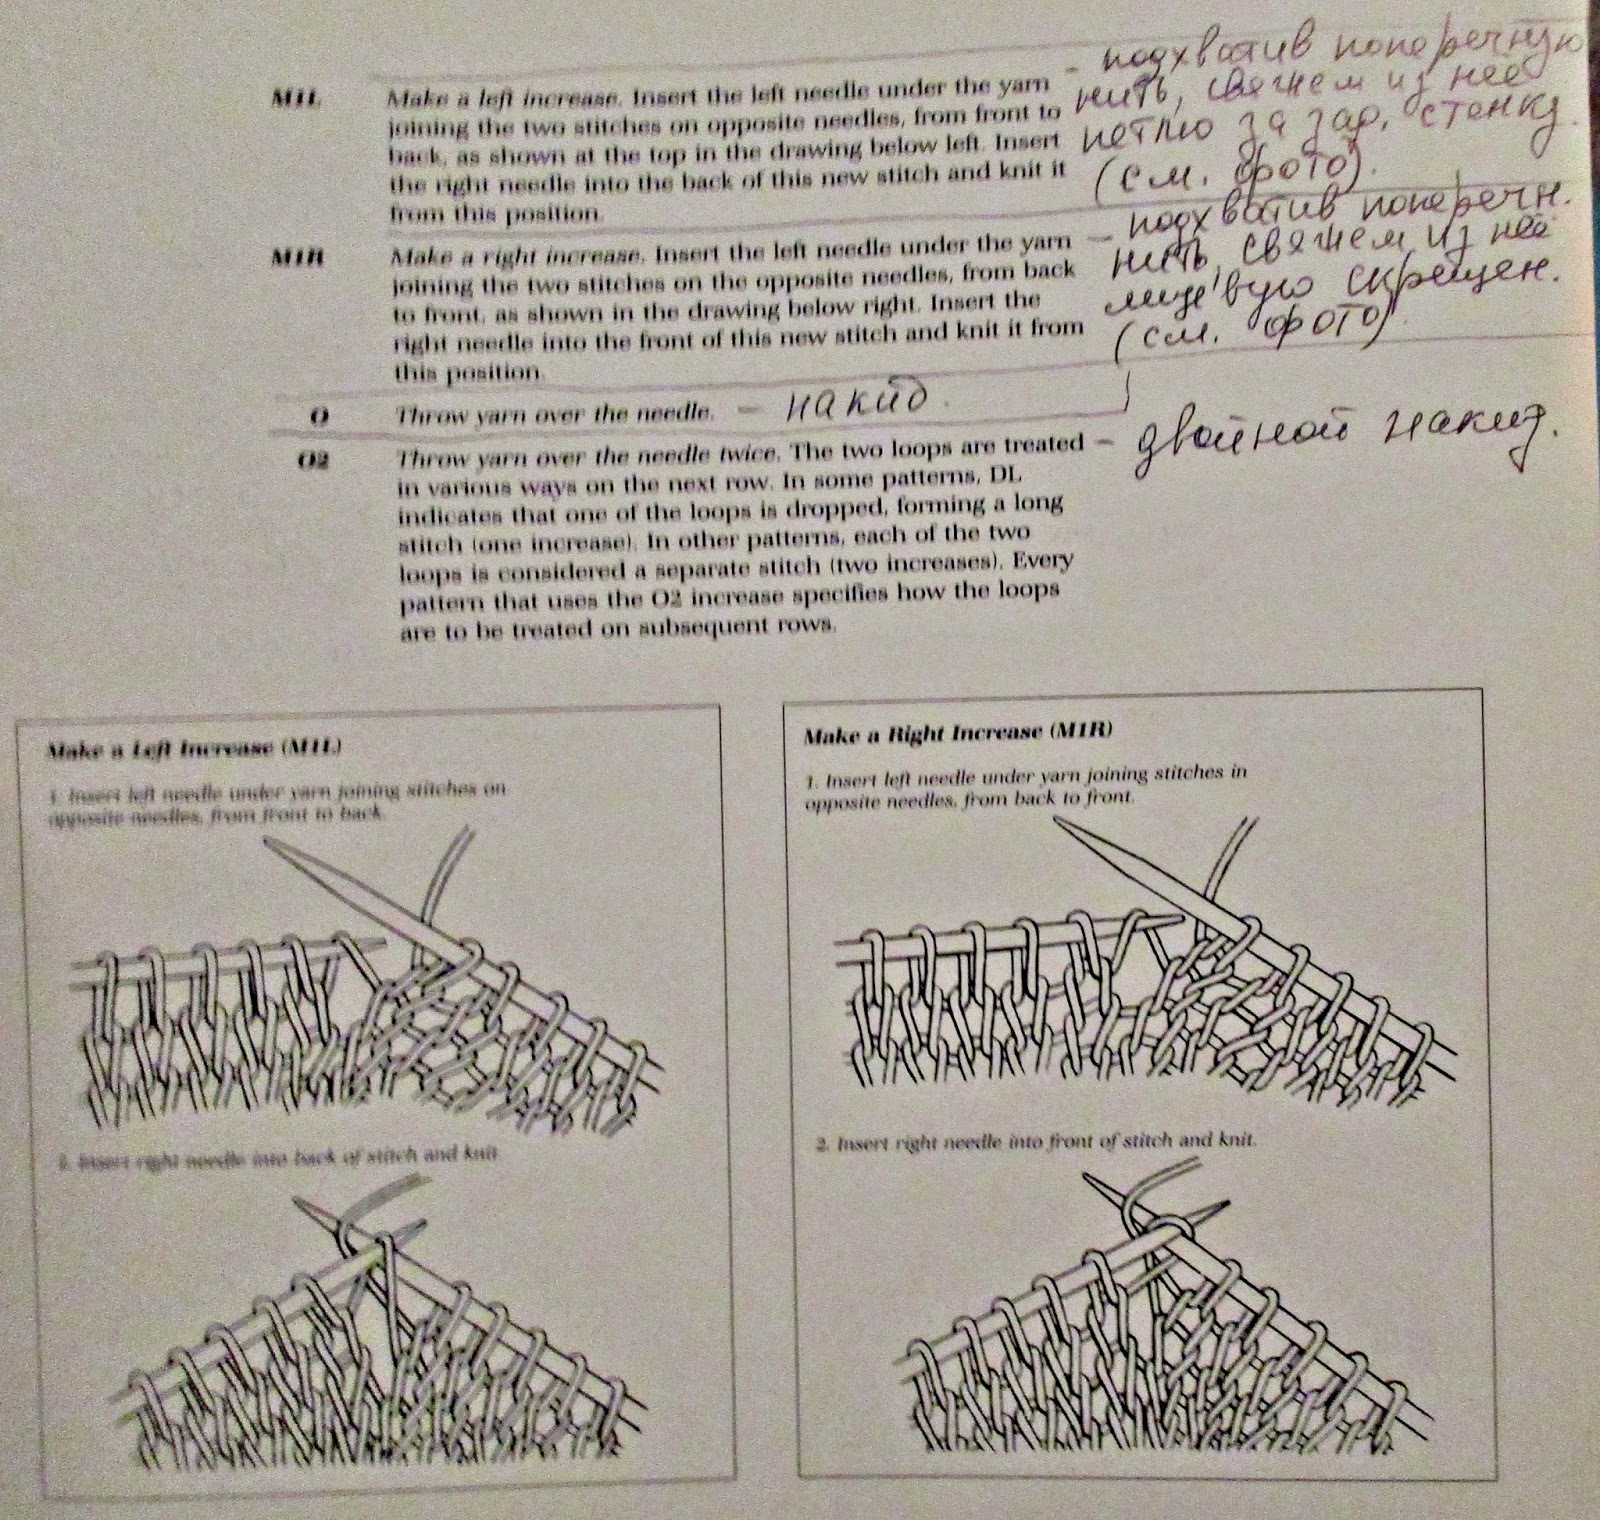 M1L Make a left increase. Insert the left needle under the yarn
joining the two stitches on opposite needles, from front to
back, as shown at the top in the drawing below left. Insert
the right needle into the back of this new stitch and knit it
from this position.
- подхватив поперечную
нить, свяжем из неё
петлю за зад. стенку.
(см. фото).
M1R Make a right increase. Insert the left needle under the yarn
joining the two stitches on the opposite needles, from back
to front, as shown in the drawing below right. Insert the
right needle into the front of this new stitch and knit it from
this position.
- подхватив поперечн.
нить, свяжем из неё
лицевую скрещен.
(см. фото).
O Throw yarn over the needle. - накид.
O2 Throw yarn over the needle twice. The two loops are treated - двойной накид.
in various ways on the next row. In some patterns, DL
indicates that one of the loops is dropped, forming a long
stitch (one increase). In other patterns, each of the two
loops is considered a separate stitch (two increases). Every
pattern that uses the O2 increase specifies how the loops
are to be treated on subsequent rows.
Make a Left Increase (M1L)
1. Insert left needle under yarn joining stitches on
opposite needles, from front to back.
2. Insert right needle into back of stitch and knit.
Make a Right Increase (M1R)
1. Insert left needle under yarn joining stitches in
opposite needles, from back to front.
2. Insert right needle into front of stitch and knit.